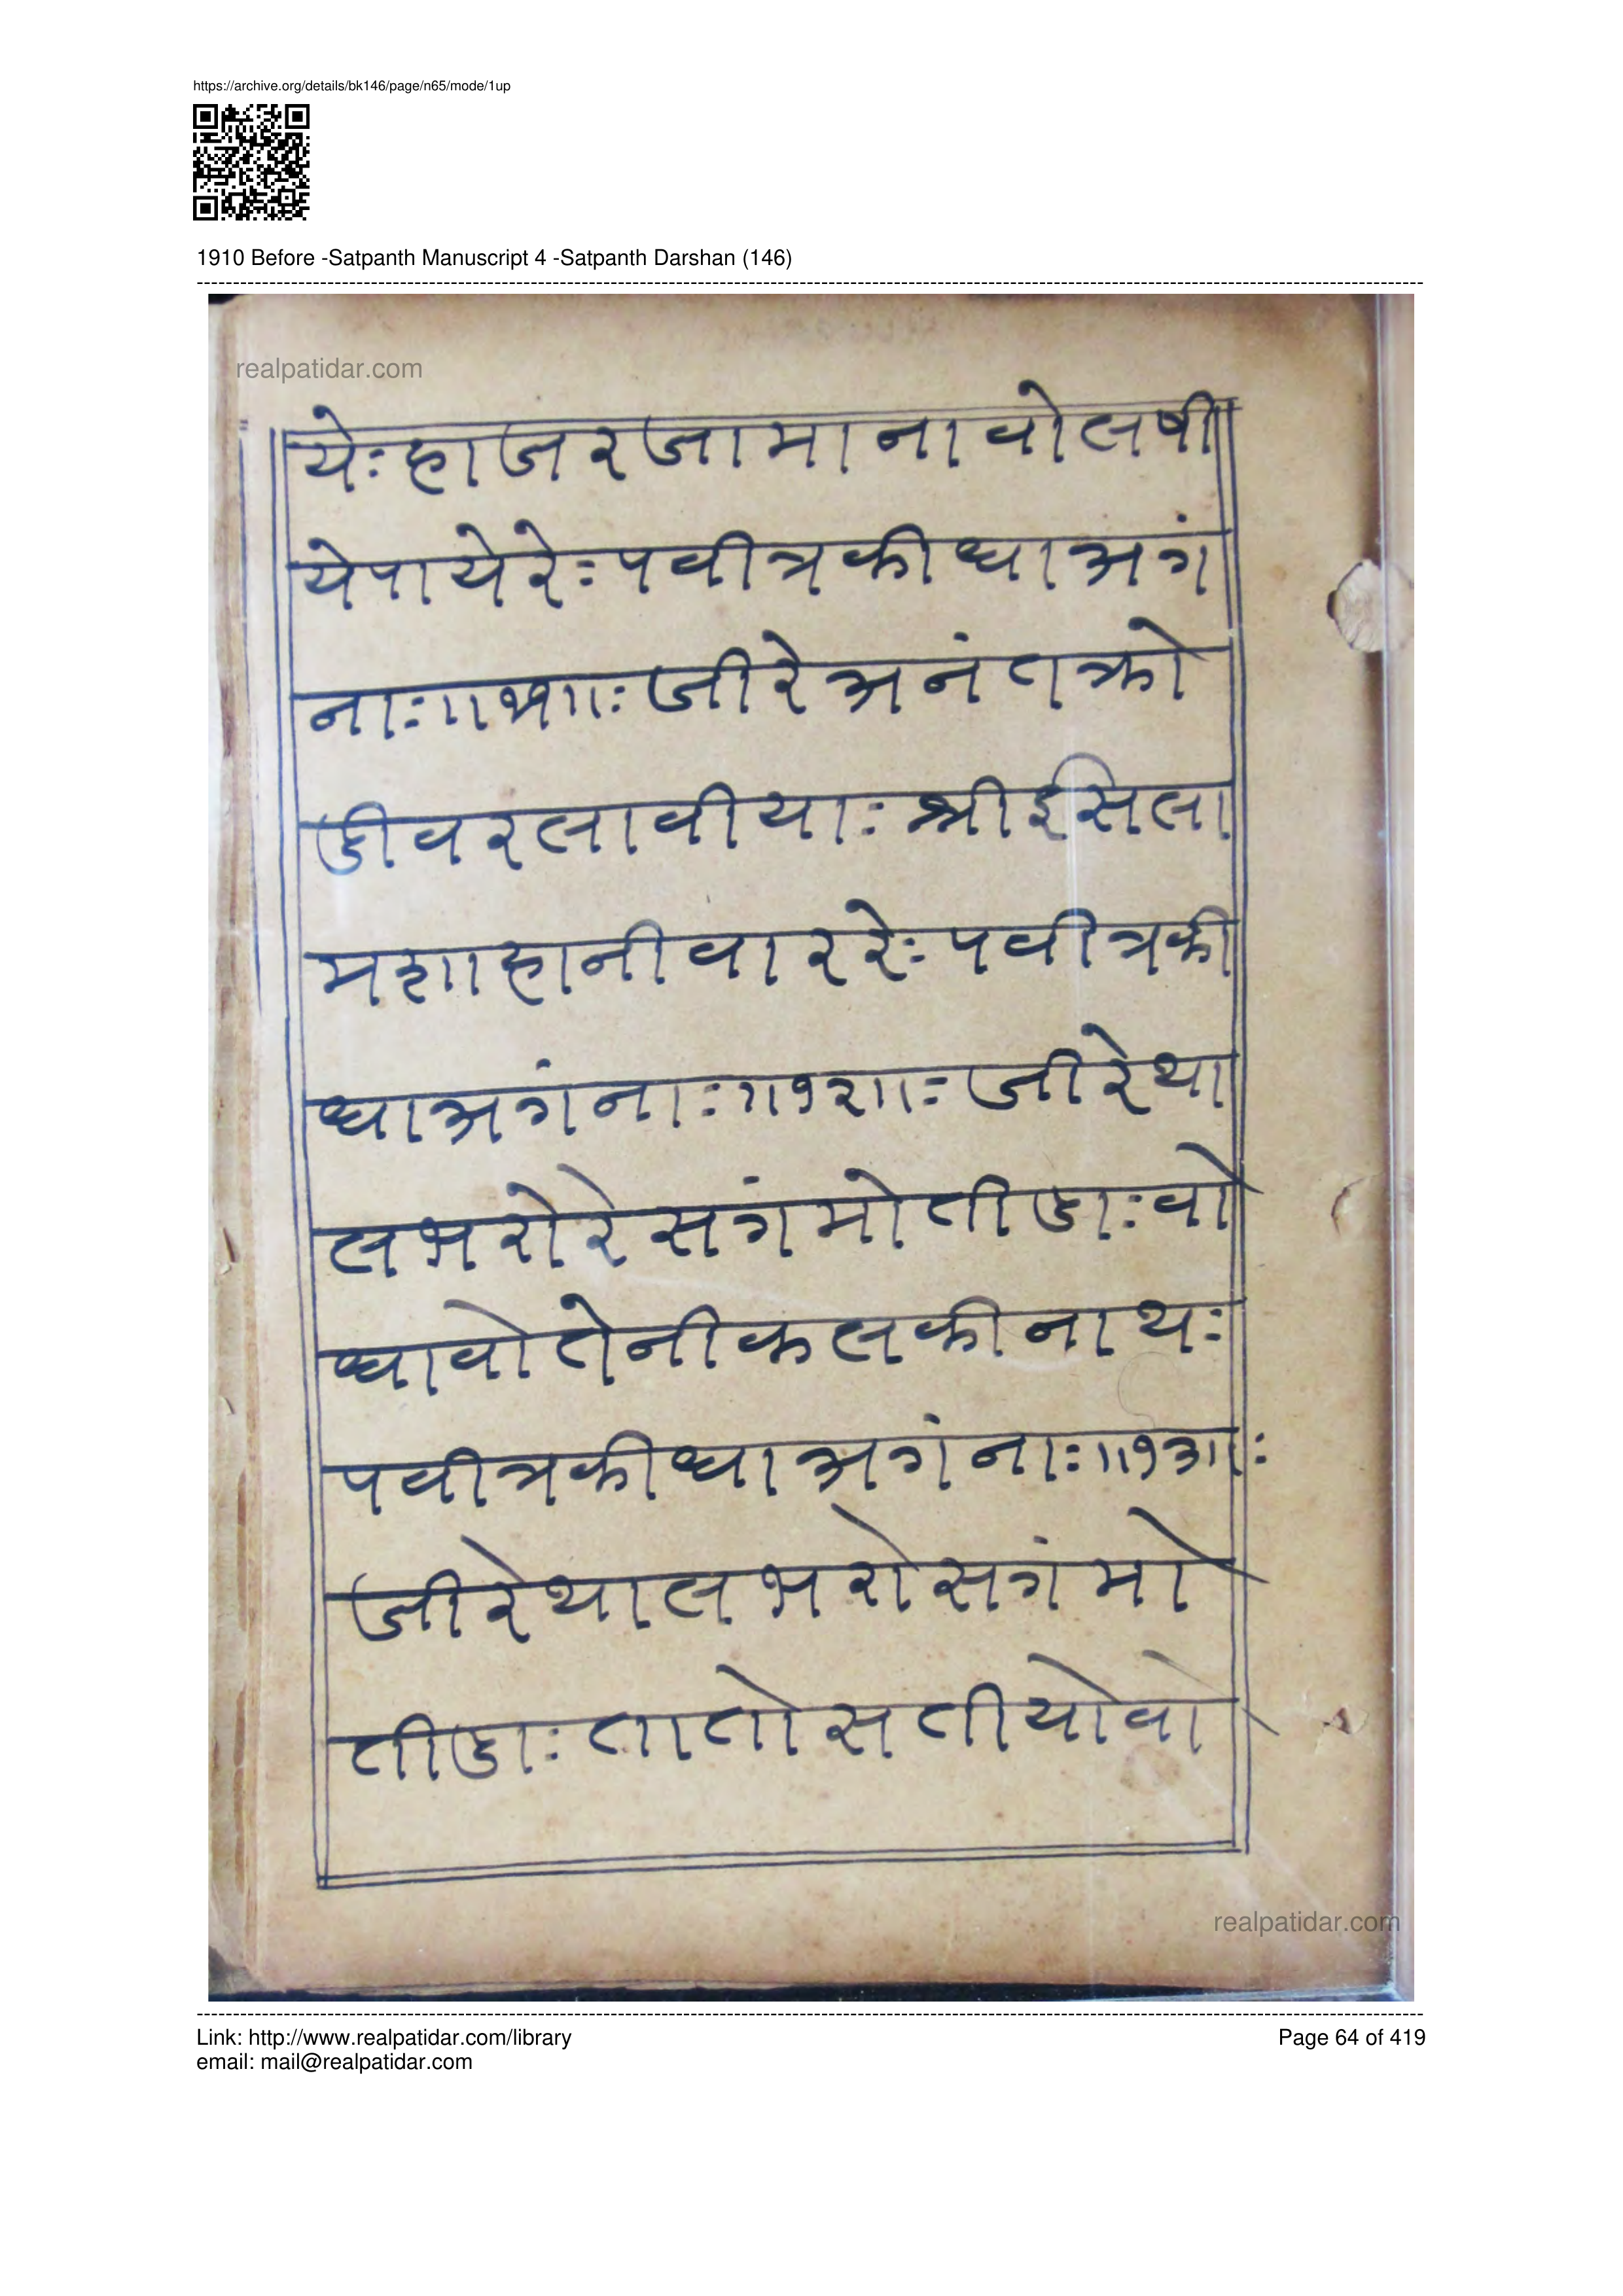 https://archive.org/details/bk146/page/n65/mode/1up
1910 Before -Satpanth Manuscript 4 -Satpanth Darshan (146)
realpatidar.com
येःहाजरजामानावोलषी
येपायेरेःपवीत्रकीधाअग
जीरेअनंतक्रो
डीवरलावीयाःश्रीइसला
मशाहानीवाररेःपवीत्रकी
धाअगंनाः॥१२॥ःजीरेथा
लभरोरेसगंमोतीडाःवो
धावोतेनीकलकीनाथः
पवीत्रकीधाअगंनाः॥१३॥ः
जीरेथालभरोसगंमो
तीडाःतातोसतीयोवो
realpatidar.com
Link: http://www.realpatidar.com/library
Page 64 of 419
email: mail@realpatidar.com